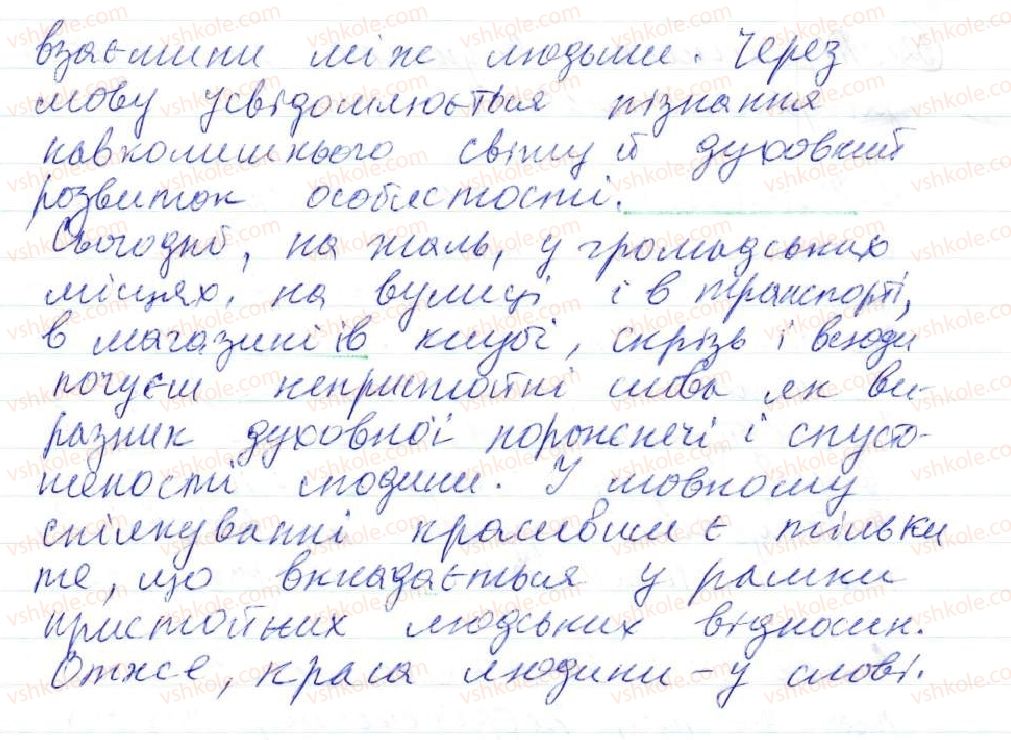 взаємини між людьми. Через
мову усвідомлюється пізнання
навколишнього світу й духовний
розвиток особистості.
Сьогодні, на жаль, у громадських
місцях, на вулиці і в транспорті,
в магазині ів клубі, скрізь і всюди
почуєш непристойні слова як ви-
разник духовної порожнечі і спусто-
шеності людини. У мовному
спілкуванні красивим є тільки
те, що вкладається у рамки
пристойних людських відносин.
Отже, краса людини – у слові.
vshkole.com